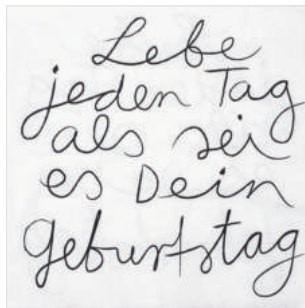 Lebe
jeden Tag
als sei
es Dein
Geburtstag